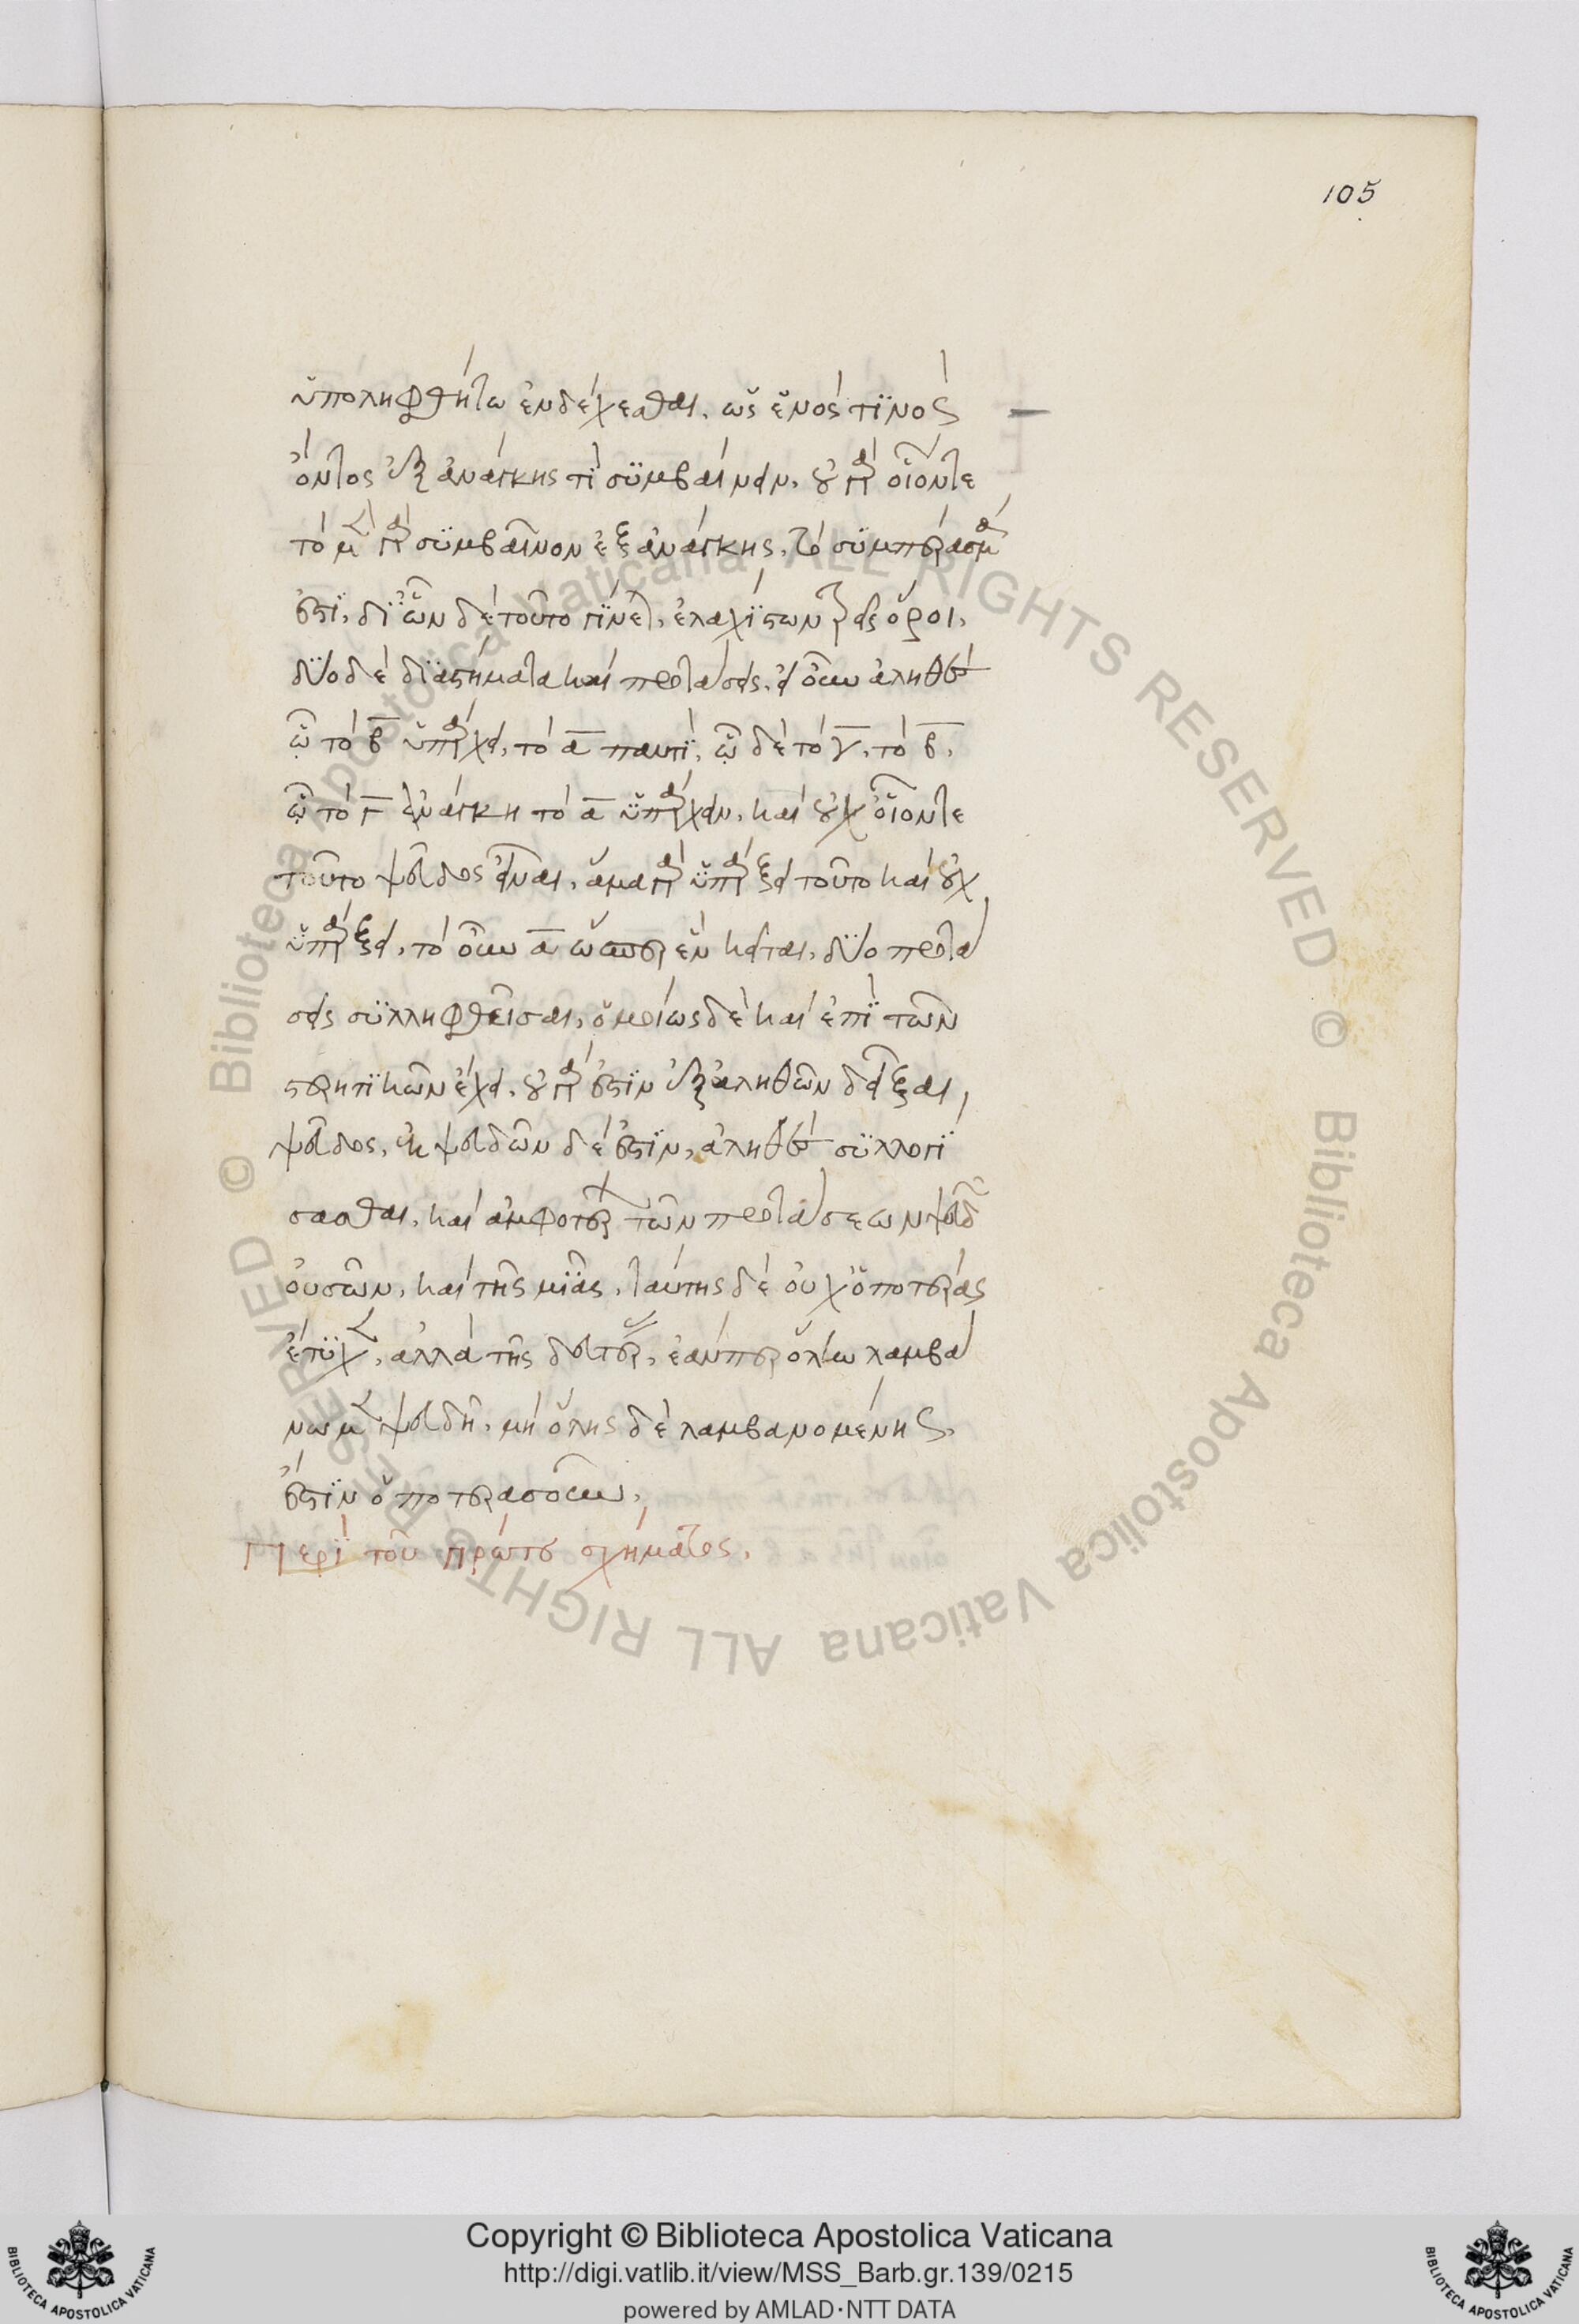 105
ὑποληφθήτω ἐνδέχεσθαι, ὡς ἑνός τινος
ὄντος ἐξ ἀνάγκης τὶ συμβαίνειν, οὐ γὰρ οἷόν τε
τὸ μὲν γὰρ συμβαῖνον ἐξ ἀνάγκης, τὸ συμπέρασμα
ἐστί, δι' ὧν δὲ τοῦτο γίνεται, ἐλαχίστων τρεῖς ὅροι,
δύο δὲ διαστήματα καὶ προτάσεις, εἰ οὖν ἀληθὲς
ᾧ τὸ β ὑπάρχει, τὸ α παντί, ᾧ δὲ τὸ γ, τὸ β,
ᾧ τὸ γ ἀνάγκη τὸ α ὑπάρχειν, καὶ οὐχ οἷόν τε
τοῦτο ψεῦδος εἶναι, ἅμα γὰρ ὑπάρξει τοῦτο καὶ οὐχ
ὑπάρξει, τὸ οὖν α ὥσπερ ἓν κεῖται, δύο προτά
σεις συλληφθεῖσαι, ὁμοίως δὲ καὶ ἐπὶ τῶν
στερητικῶν ἔχει, οὐ γὰρ ἐστὶν ἐξ ἀληθῶν δεῖξαι
ψεῦδος, ἐκ ψευδῶν δέ ἐστιν, ἀληθὲς συλλογί
σασθαι, καὶ ἀμφοτέρων τῶν προτάσεων ψευδῶν
οὐσῶν, καὶ τῆς μιᾶς, ταύτης δὲ οὐχ ὁποτέρας
ἔτυχεν, ἀλλὰ τῆς δευτέρας, ἐάνπερ ὅλην λαμβά
νωμεν ψευδῆ, μὴ ὅλης δὲ λαμβανομένης,
ἔστιν ὁποτερασοῦν,
Περὶ τοῦ πρώτου σχήματος.
Copyright © Biblioteca Apostolica Vaticana
http://digi.vatlib.it/view/MSS_Barb.gr.139/0215
powered by AMLAD·NTT DATA
BIBLIOTECA APOSTOLICA VATICANA
BIBLIOTECA APOSTOLICA VATICANA
© Biblioteca Apostolica Vaticana ALL RIGHTS RESERVED © Biblioteca Apostolica Vaticana ALL RIGHTS RESERVED